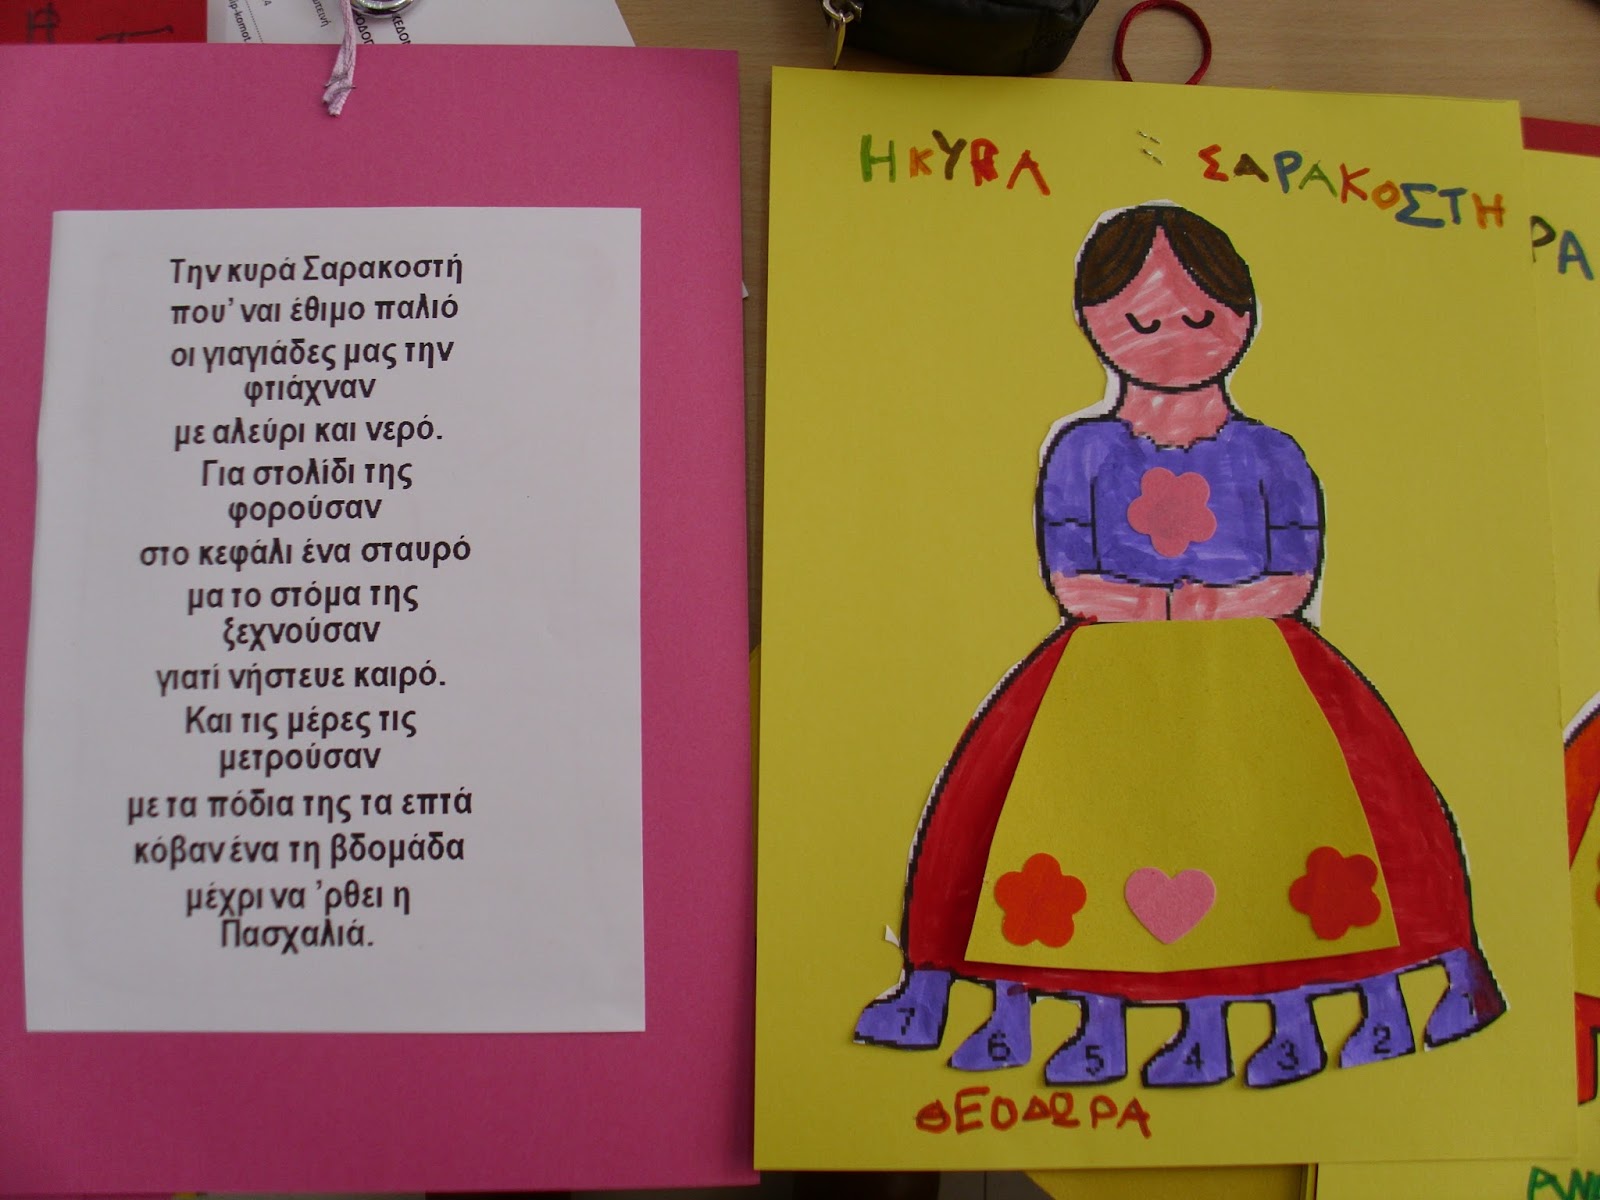 Την κυρά Σαρακοστή
που' ναι έθιμο παλιό
οι γιαγιάδες μας την
φτιάχναν
με αλεύρι και νερό.
Για στολίδι της
φορούσαν
στο κεφάλι ένα σταυρό
μα το στόμα της
ξεχνούσαν
γιατί νήστευε καιρό.
Και τις μέρες τις
μετρούσαν
με τα πόδια της τα επτά
κόβαν ένα τη βδομάδα
μέχρι να 'ρθει η
Πασχαλιά.
Η ΚΥΡΑ ΣΑΡΑΚΟΣΤΗ
7 6 5 4 3 2 1
ΘΕΟΔΩΡΑ
ΡΑ